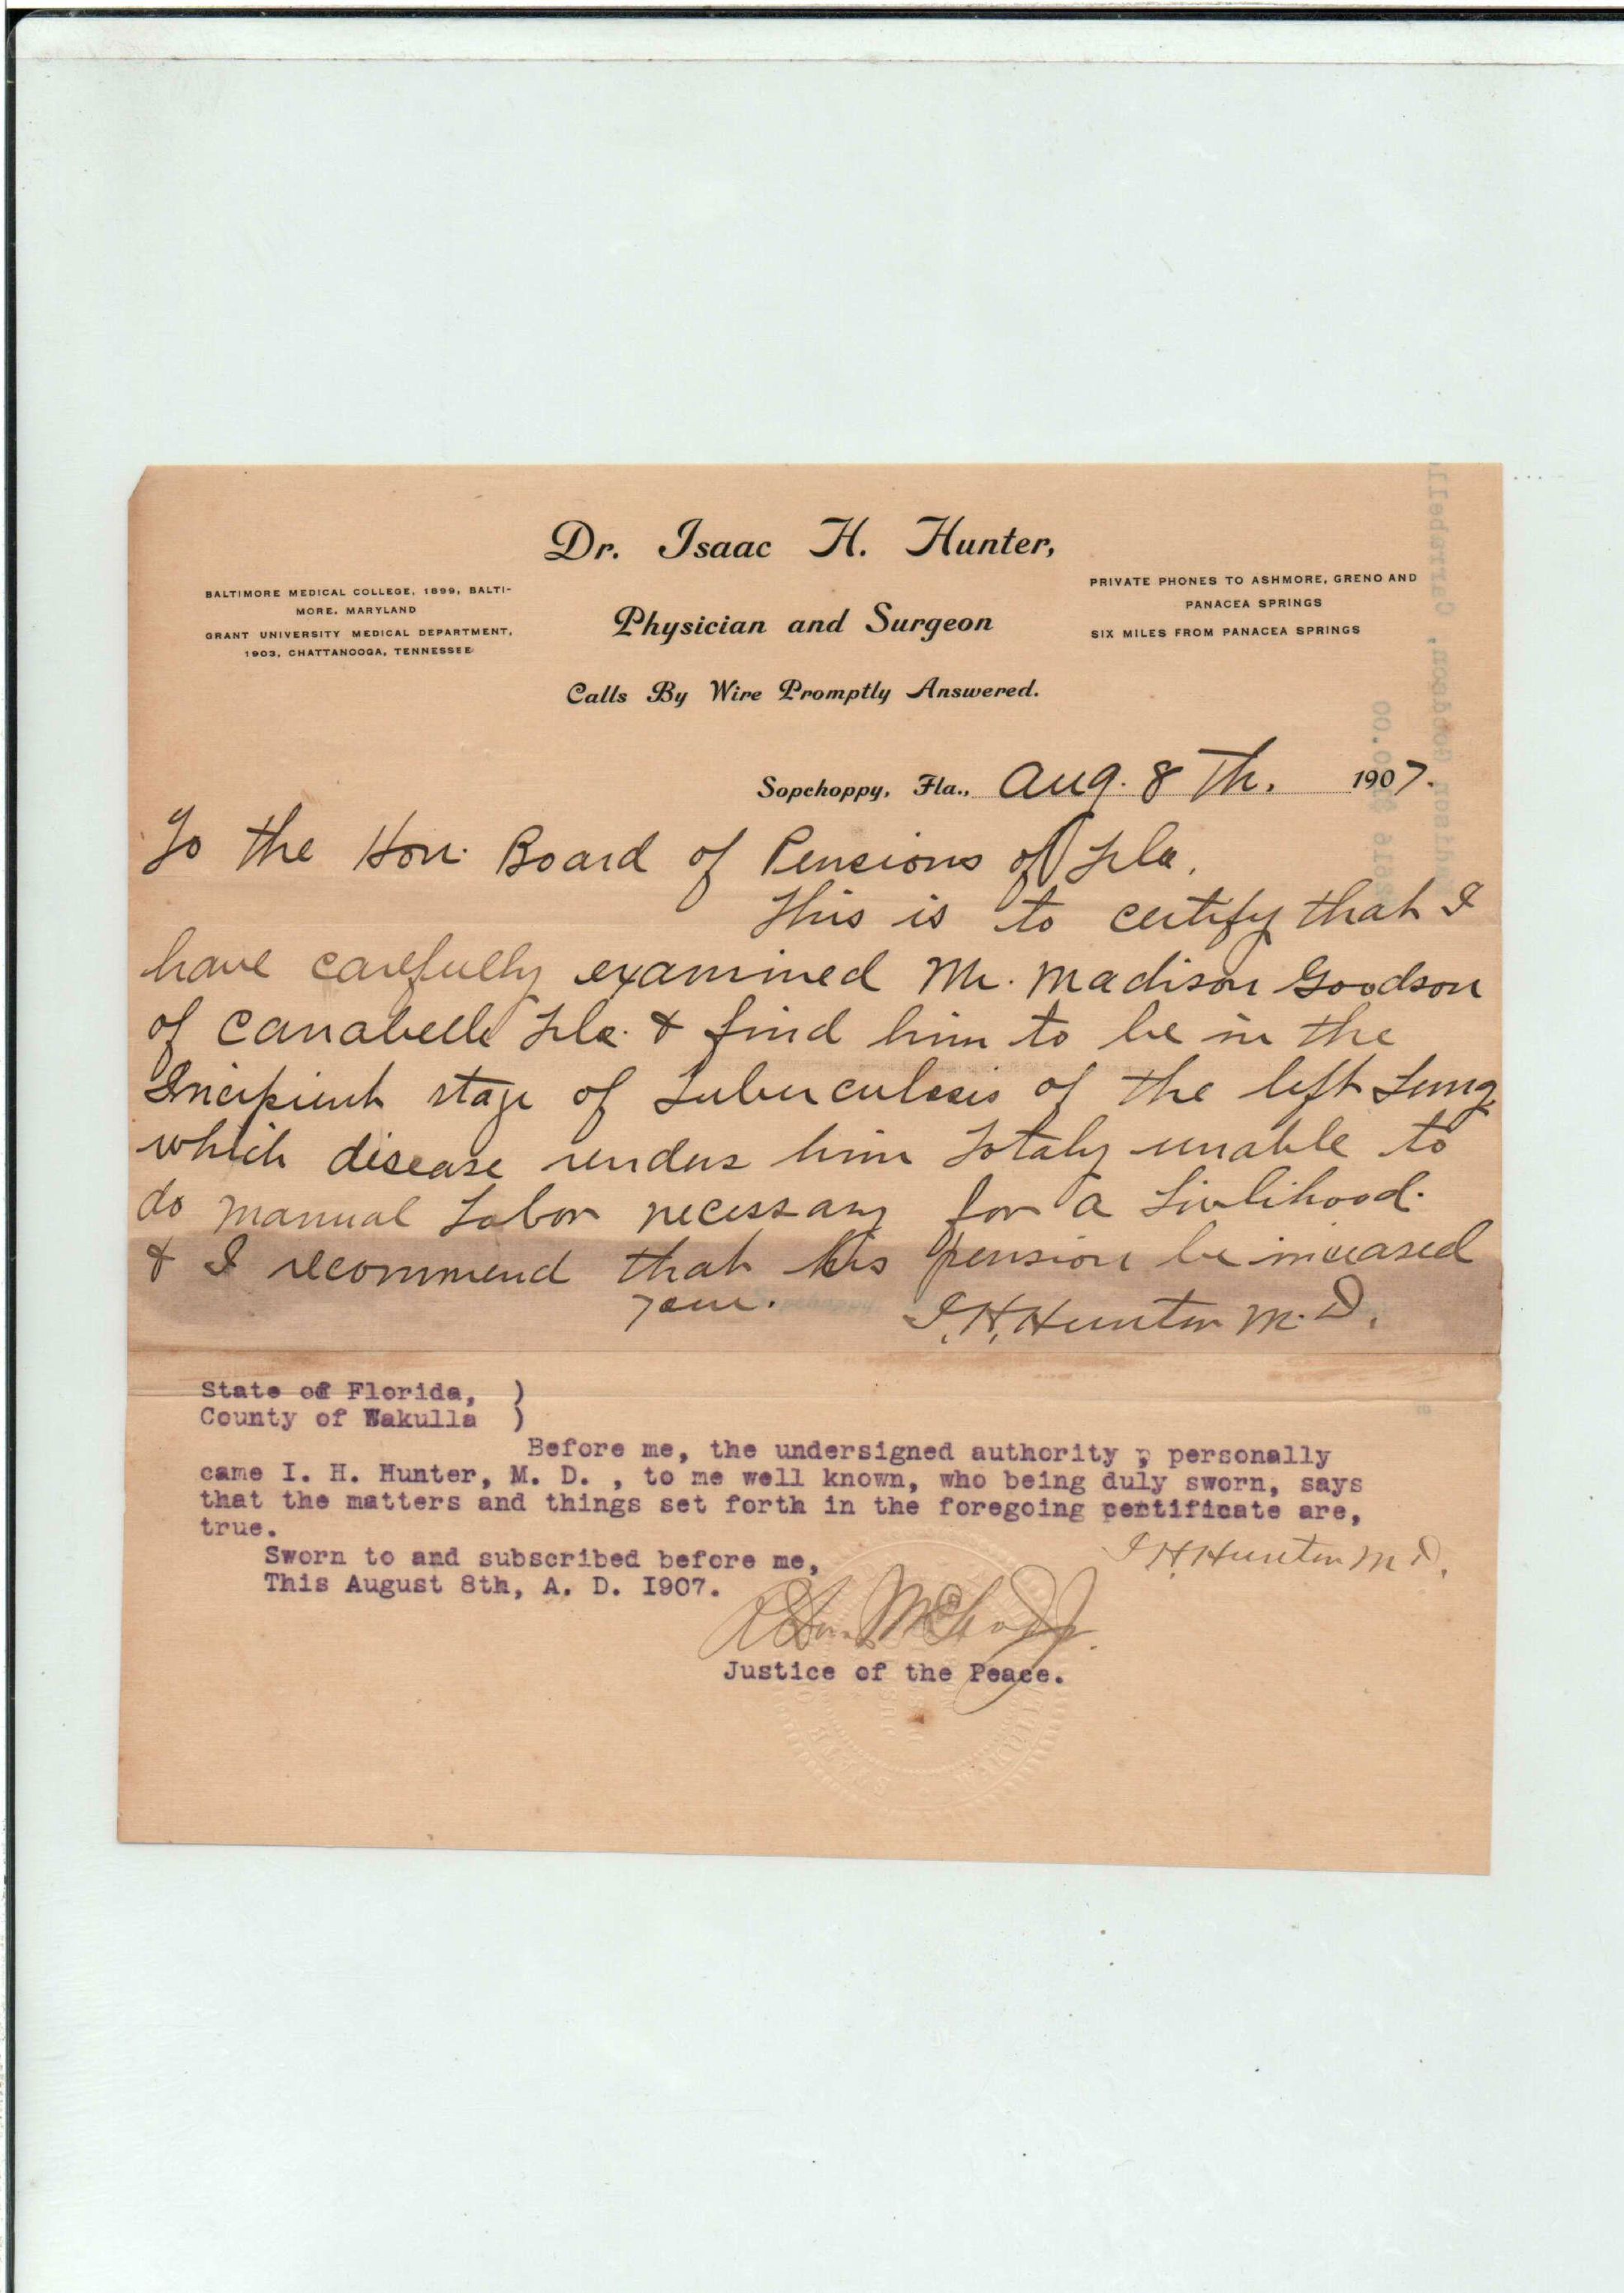 Dr. Isaac H. Hunter,
BALTIMORE MEDICAL COLLEGE, 1899, BALTI-
MORE, MARYLAND
GRANT UNIVERSITY MEDICAL DEPARTMENT,
1903, CHATTANOOGA, TENNESSEE
Physician and Surgeon
Calls By Wire Promptly Answered.
PRIVATE PHONES TO ASHMORE, GRENO AND
PANACEA SPRINGS
SIX MILES FROM PANACEA SPRINGS
Sopchoppy, Fla., Aug. 8th. 1907.
To the Hon. Board of Pensions of Fla.
This is to certify that I
have carefully examined Mr. Madison Goodson
of Carrabelle Fla. & find him to be in the
Incipient stage of Tuberculosis of the left Lung
which disease renders him Totaly unable to
do manual Labor necessary for a Livlihood.
& I recommend that his pension be increased
I. H. Hunter M. D.
State of Florida, )
County of Wakulla )
Before me, the undersigned authority , personally
came I. H. Hunter, M. D. , to me well known, who being duly sworn, says
that the matters and things set forth in the foregoing certificate are,
true.
I H. Hunter M D.
Sworn to and subscribed before me,
This August 8th, A. D. I907.
Justice of the Peace.